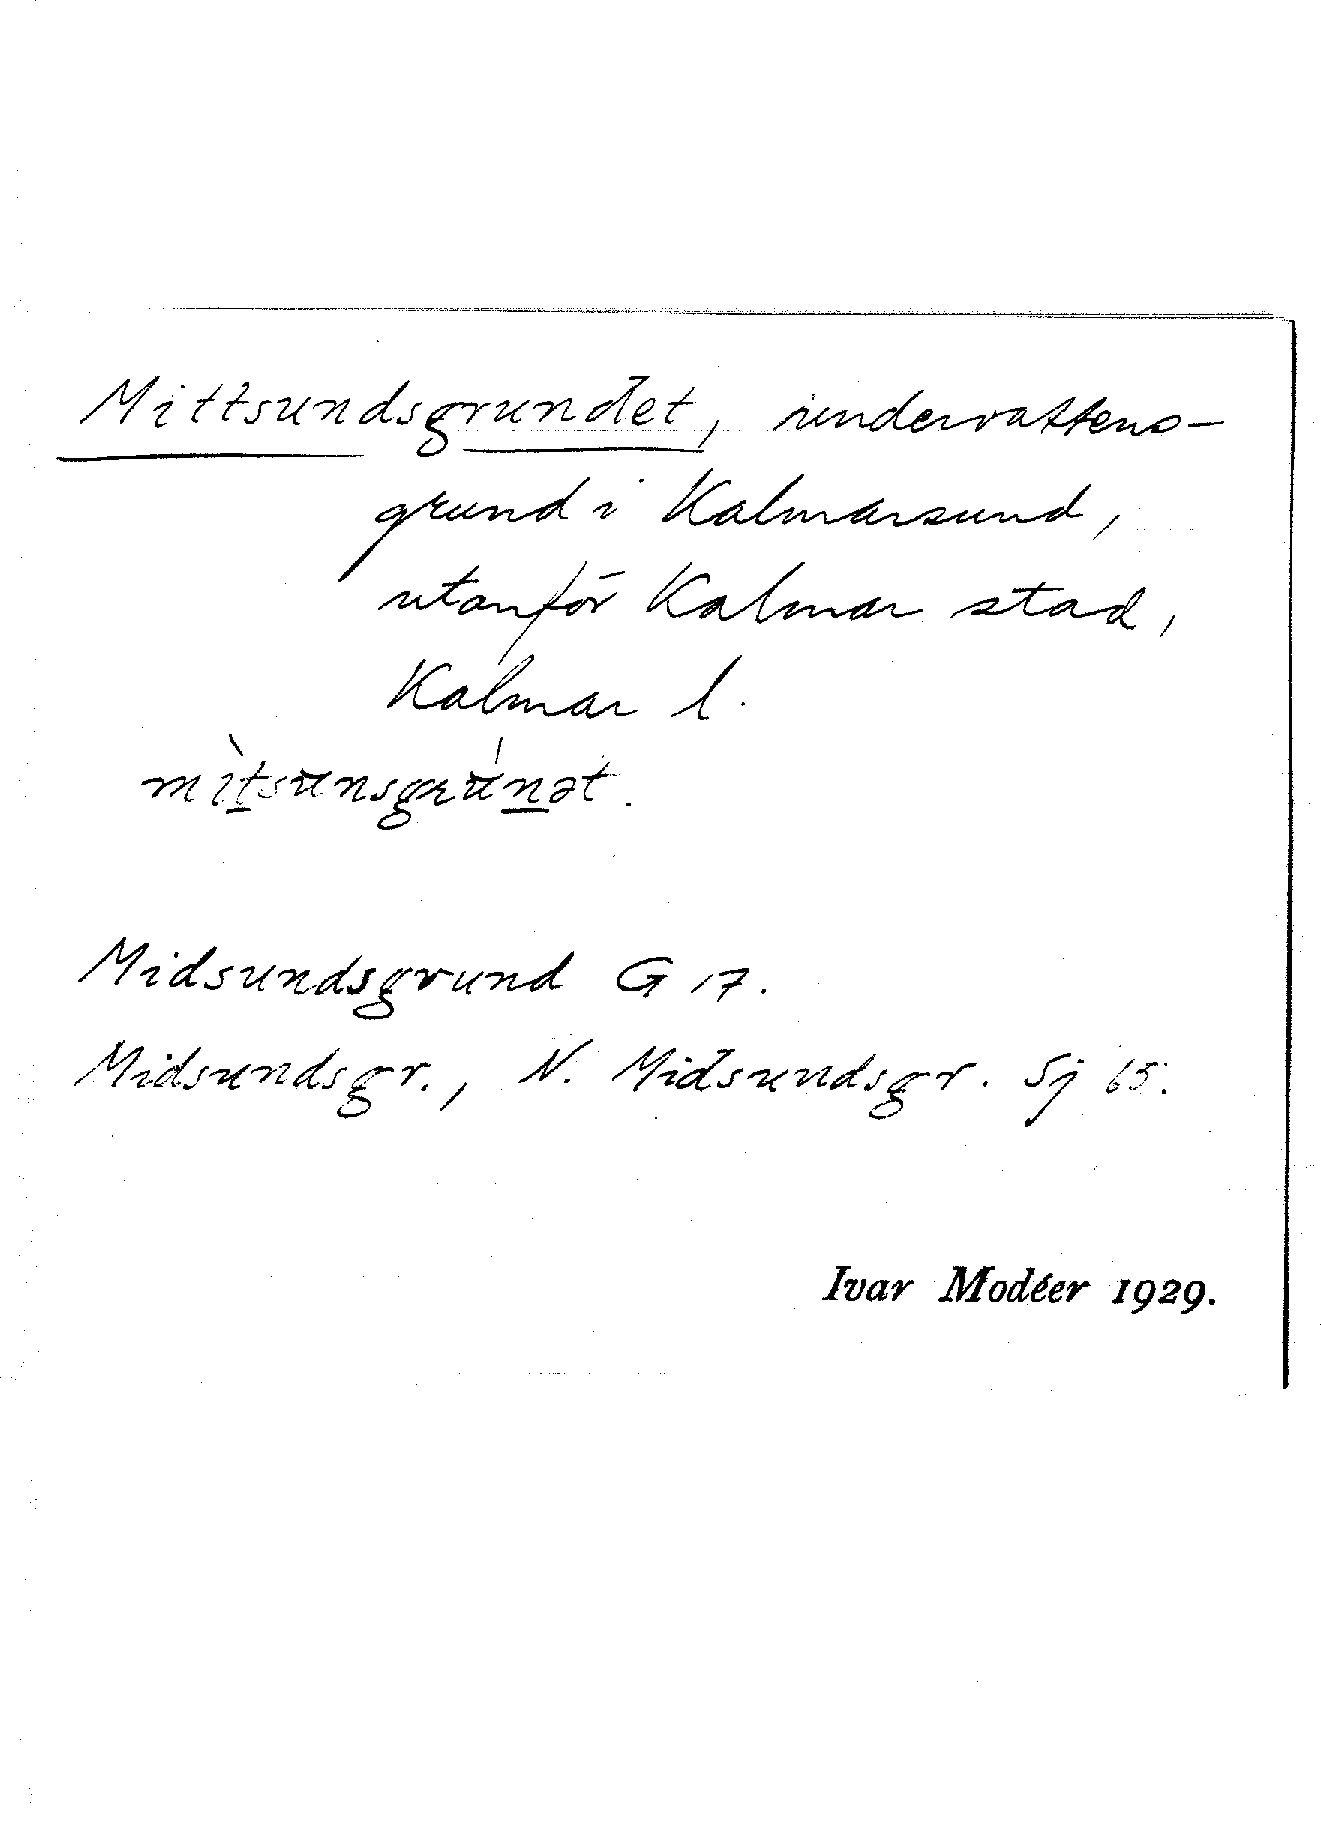 Mittsundsgrundet, undervattens-
grund i Kalmarsund,
utanför Kalmar stad,
Kalmar l.
mìtsunsgrúnət.
Midsundsgrund G 17.
Midsundsgr., N. Midsundsgr. Sj 65.
Ivar Modéer 1929.